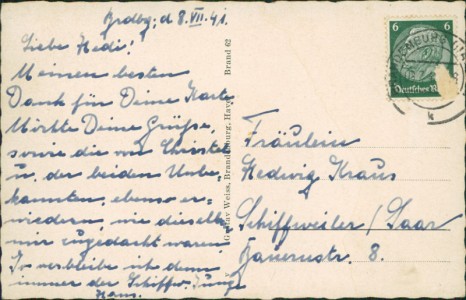 Brdbg; d 8.VII.41.
Liebe Hedi!
Meinen besten
Dank für Deine Karte
Möchte Deine Grüße,
sowie die von Christel
u. der beiden Unbe-
kannten, ebenso er-
wiedern, wie dieselb.
mir zugedacht waren
So verbleibe ich denn
immer der Schiffw. Junge
Hans.
Gustav Weiss, Brandenburg, Havel Brand 62
6
Deutsches Reich
Fräulein
Hedwig Kraus
Schiffweiler/Saar
Bauernstr. 8.